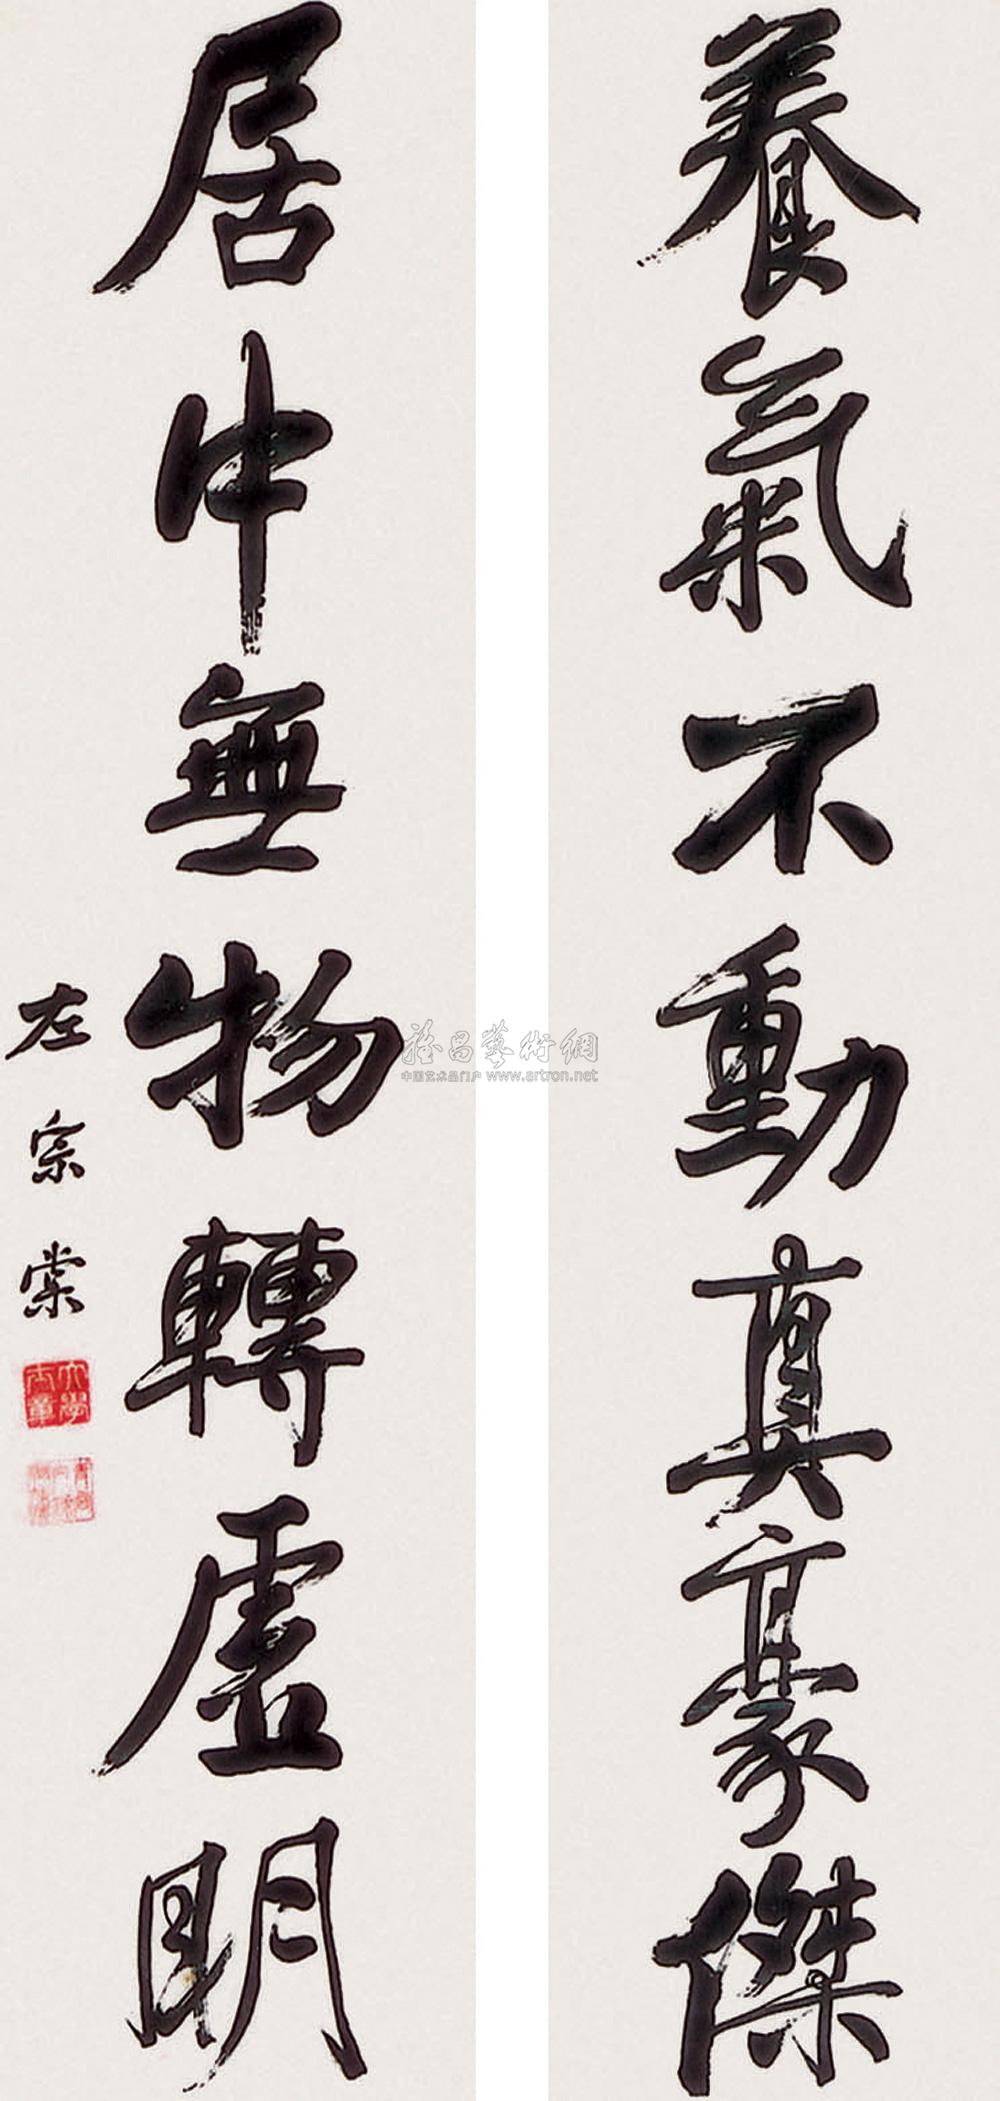 養氣不動真豪傑
居中無物轉虛明
左宗棠
大學士章
雅昌藝術網
中国艺术品门户 www.artron.net